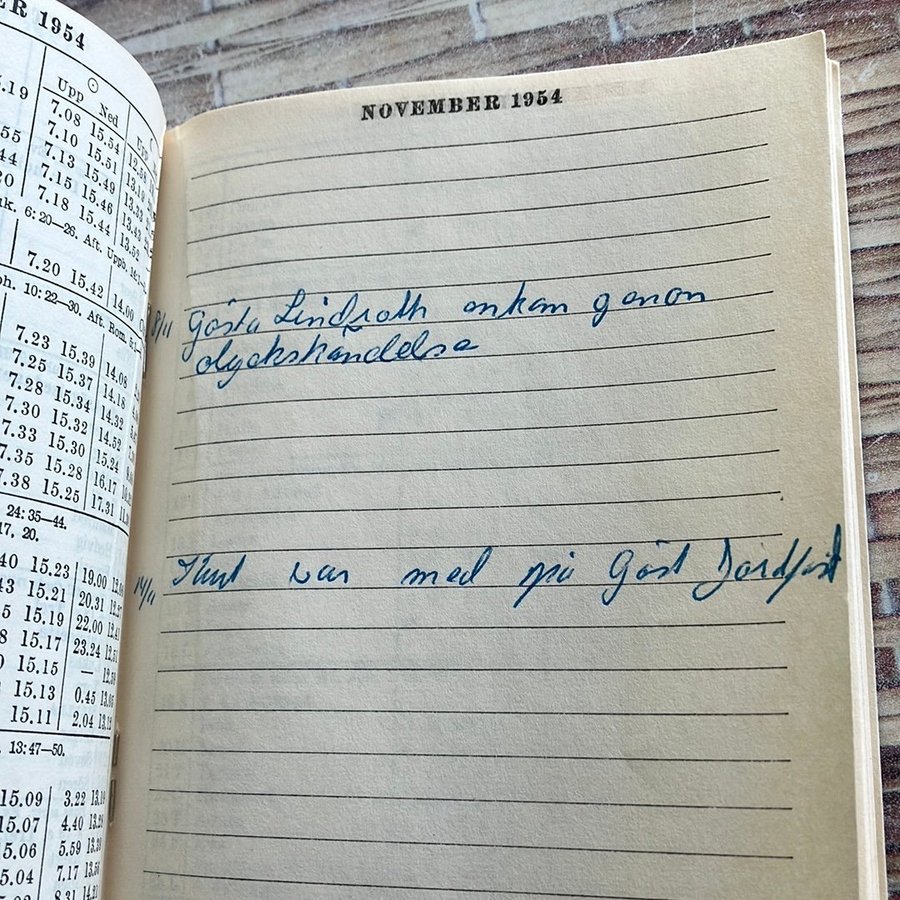 ER 1954
Upp Ned
5.19 7.08 15.54
7.10 15.51
7.13 15.49
7.15 15.46
7.18 15.44
6:20—26. Aft. Uppb.
7.20 15.42 14.00
10:22—30. Aft. Rom. 5:1—
7.23 15.39 14.08
7.25 15.37 14.18
7.28 15.34 14.32
7.30 15.32 14.52
7.33 15.30 15.24
7.35 15.28 16.17
7.38 15.25 17.31
24:35—44.
17, 20.
40 15.23 19.00
43 15.21 20.31
15.19 22.00
15.17 23.24
15.15 —
15.13 0.45
15.11 2.04
13:47—50.
15.09 3.22
15.07 4.40
15.06 5.59
15.04 7.17
8.31
NOVEMBER 1954
8/11 Gösta Lindroth omkom genom
olyckshändelse
14/11 Knut var med på Göst Jordfäst